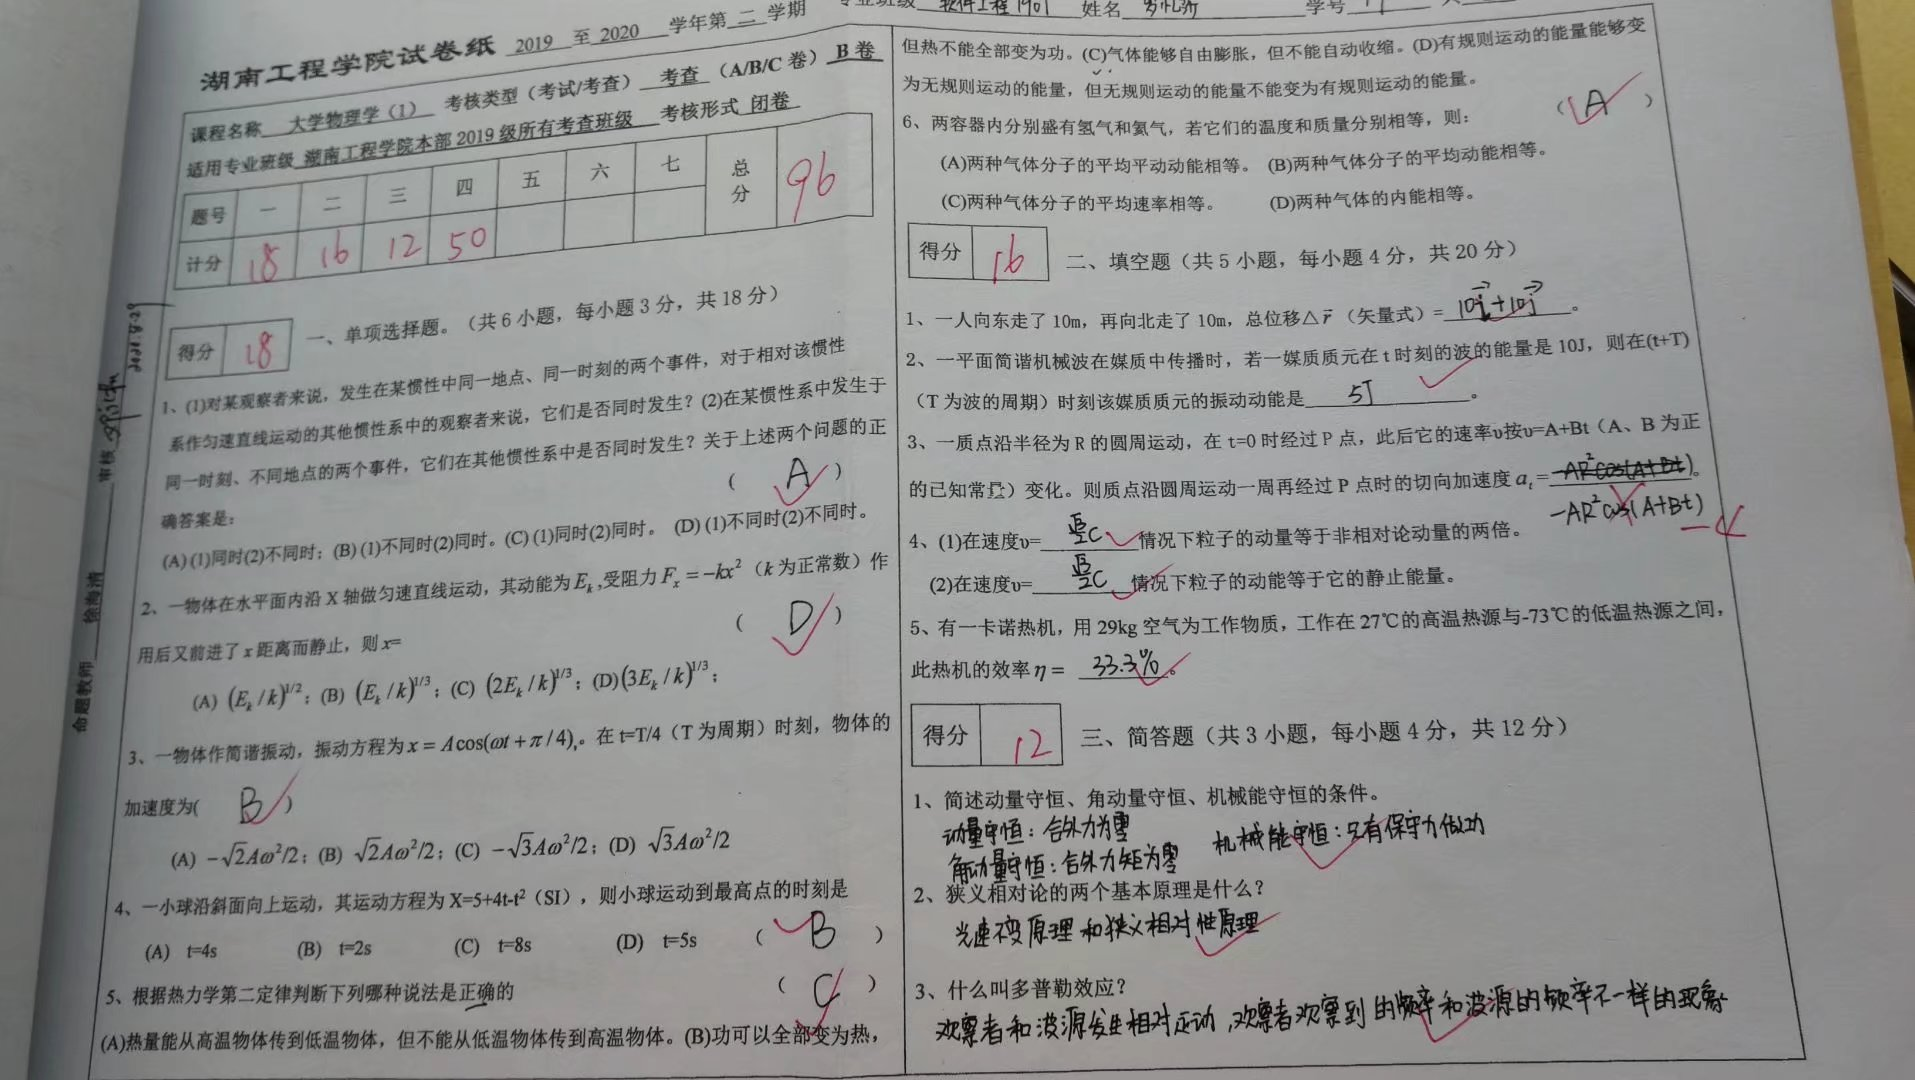 湖南工程学院试卷纸 2019 至 2020 学年第 二 学期
专业班级 软件工程1901 姓名 学号
课程名称 大学物理学（1） 考核类型（考试/考查） 考查 （A/B/C 卷） B 卷
适用专业班级 湖南工程学院本部 2019 级所有考查班级 考核形式 闭卷
题号 一 二 三 四 五 六 七 总分 96
计分 18 16 12 50
得分 18 一、单项选择题。（共 6 小题，每小题 3 分，共 18 分）
1、(1)对某观察者来说，发生在某惯性中同一地点、同一时刻的两个事件，对于相对该惯性
系作匀速直线运动的其他惯性系中的观察者来说，它们是否同时发生？(2)在某惯性系中发生于
同一时刻、不同地点的两个事件，它们在其他惯性系中是否同时发生？关于上述两个问题的正
确答案是: （ A ）
(A) (1)同时(2)不同时；(B) (1)不同时(2)同时。(C) (1)同时(2)同时。 (D) (1)不同时(2)不同时。
2、一物体在水平面内沿 X 轴做匀速直线运动，其动能为 Eₖ,受阻力 Fₓ = −kx²（k 为正常数）作
用后又前进了 x 距离而静止，则 x= （ D ）
(A) (Eₖ / k)^1/2；(B) (Eₖ / k)^1/3；(C) (2Eₖ / k)^1/3；(D) (3Eₖ / k)^1/3；
3、一物体作简谐振动，振动方程为 x = A cos(ωt + π / 4),。在 t=T/4（T 为周期）时刻，物体的
加速度为( B )
(A) −√2Aω²/2；(B) √2Aω²/2；(C) −√3Aω²/2；(D) √3Aω²/2
4、一小球沿斜面向上运动，其运动方程为 X=5+4t-t²（SI），则小球运动到最高点的时刻是
(A) t=4s (B) t=2s (C) t=8s (D) t=5s （ B ）
5、根据热力学第二定律判断下列哪种说法是正确的 （ C ）
(A)热量能从高温物体传到低温物体，但不能从低温物体传到高温物体。(B)功可以全部变为热，
但热不能全部变为功。(C)气体能够自由膨胀，但不能自动收缩。(D)有规则运动的能量能够变
为无规则运动的能量，但无规则运动的能量不能变为有规则运动的能量。
6、两容器内分别盛有氢气和氦气，若它们的温度和质量分别相等，则: （ A ）
(A)两种气体分子的平均平动动能相等。 (B)两种气体分子的平均动能相等。
(C)两种气体分子的平均速率相等。 (D)两种气体的内能相等。
得分 16 二、填空题（共 5 小题，每小题 4 分，共 20 分）
1、一人向东走了 10m，再向北走了 10m，总位移△r⃗（矢量式）= 10i⃗+10j⃗ 。
2、一平面简谐机械波在媒质中传播时，若一媒质质元在 t 时刻的波的能量是 10J，则在(t+T)
（T 为波的周期）时刻该媒质质元的振动动能是 5J 。
3、一质点沿半径为 R 的圆周运动，在 t=0 时经过 P 点，此后它的速率υ按υ=A+Bt（A、B 为正
的已知常量）变化。则质点沿圆周运动一周再经过 P 点时的切向加速度 aₜ= -AR²cos(A+Bt) 。
-AR²cos(A+Bt) -4
4、(1)在速度υ= √3/2C 情况下粒子的动量等于非相对论动量的两倍。
(2)在速度υ= √3/2C 情况下粒子的动能等于它的静止能量。
5、有一卡诺热机，用 29kg 空气为工作物质，工作在 27℃的高温热源与-73℃的低温热源之间，
此热机的效率 η = 33.3% 。
得分 12 三、简答题（共 3 小题，每小题 4 分，共 12 分）
1、简述动量守恒、角动量守恒、机械能守恒的条件。
动量守恒：合外力为零 机械能守恒：只有保守力做功
角动量守恒：合外力矩为零
2、狭义相对论的两个基本原理是什么？
光速不变原理和狭义相对性原理
3、什么叫多普勒效应？
观察者和波源发生相对运动，观察者观察到的频率和波源的频率不一样的现象
命题教师 徐海清 审核